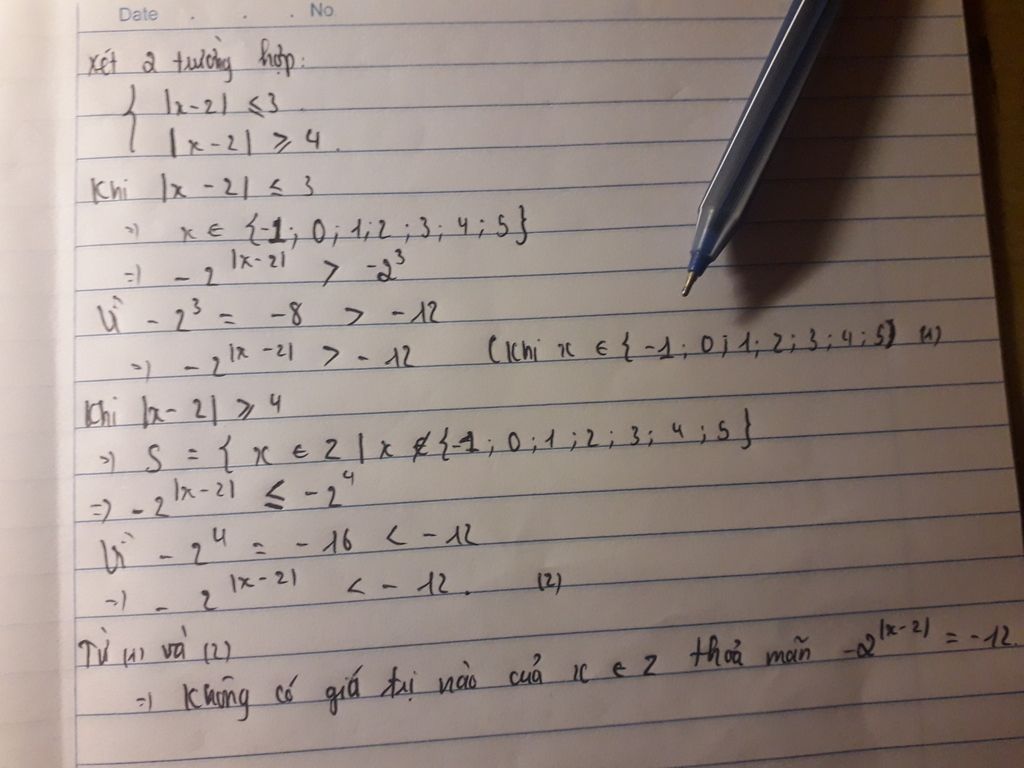 Date . . . No
Xét 2 trường hợp:
{ |x-2| ≤ 3
|x-2| ≥ 4.
Khi |x - 2| ≤ 3
=> x ∈ {-1; 0; 1; 2; 3; 4; 5}
=> - 2^|x-2| > -2^3
Vì - 2^3 = -8 > -12
=> - 2^|x-2| > - 12 (Khi x ∈ {-1; 0; 1; 2; 3; 4; 5}) (1)
Khi |x - 2| ≥ 4
=> S = { x ∈ Z | x ∉ {-1; 0; 1; 2; 3; 4; 5}
=> - 2^|x-2| ≤ - 2^4
Vì - 2^4 = - 16 < - 12
=> - 2^|x-2| < - 12. (2)
Từ (1) và (2)
=> Không có giá trị nào của x ∈ Z thoả mãn -2^|x-2| = -12.